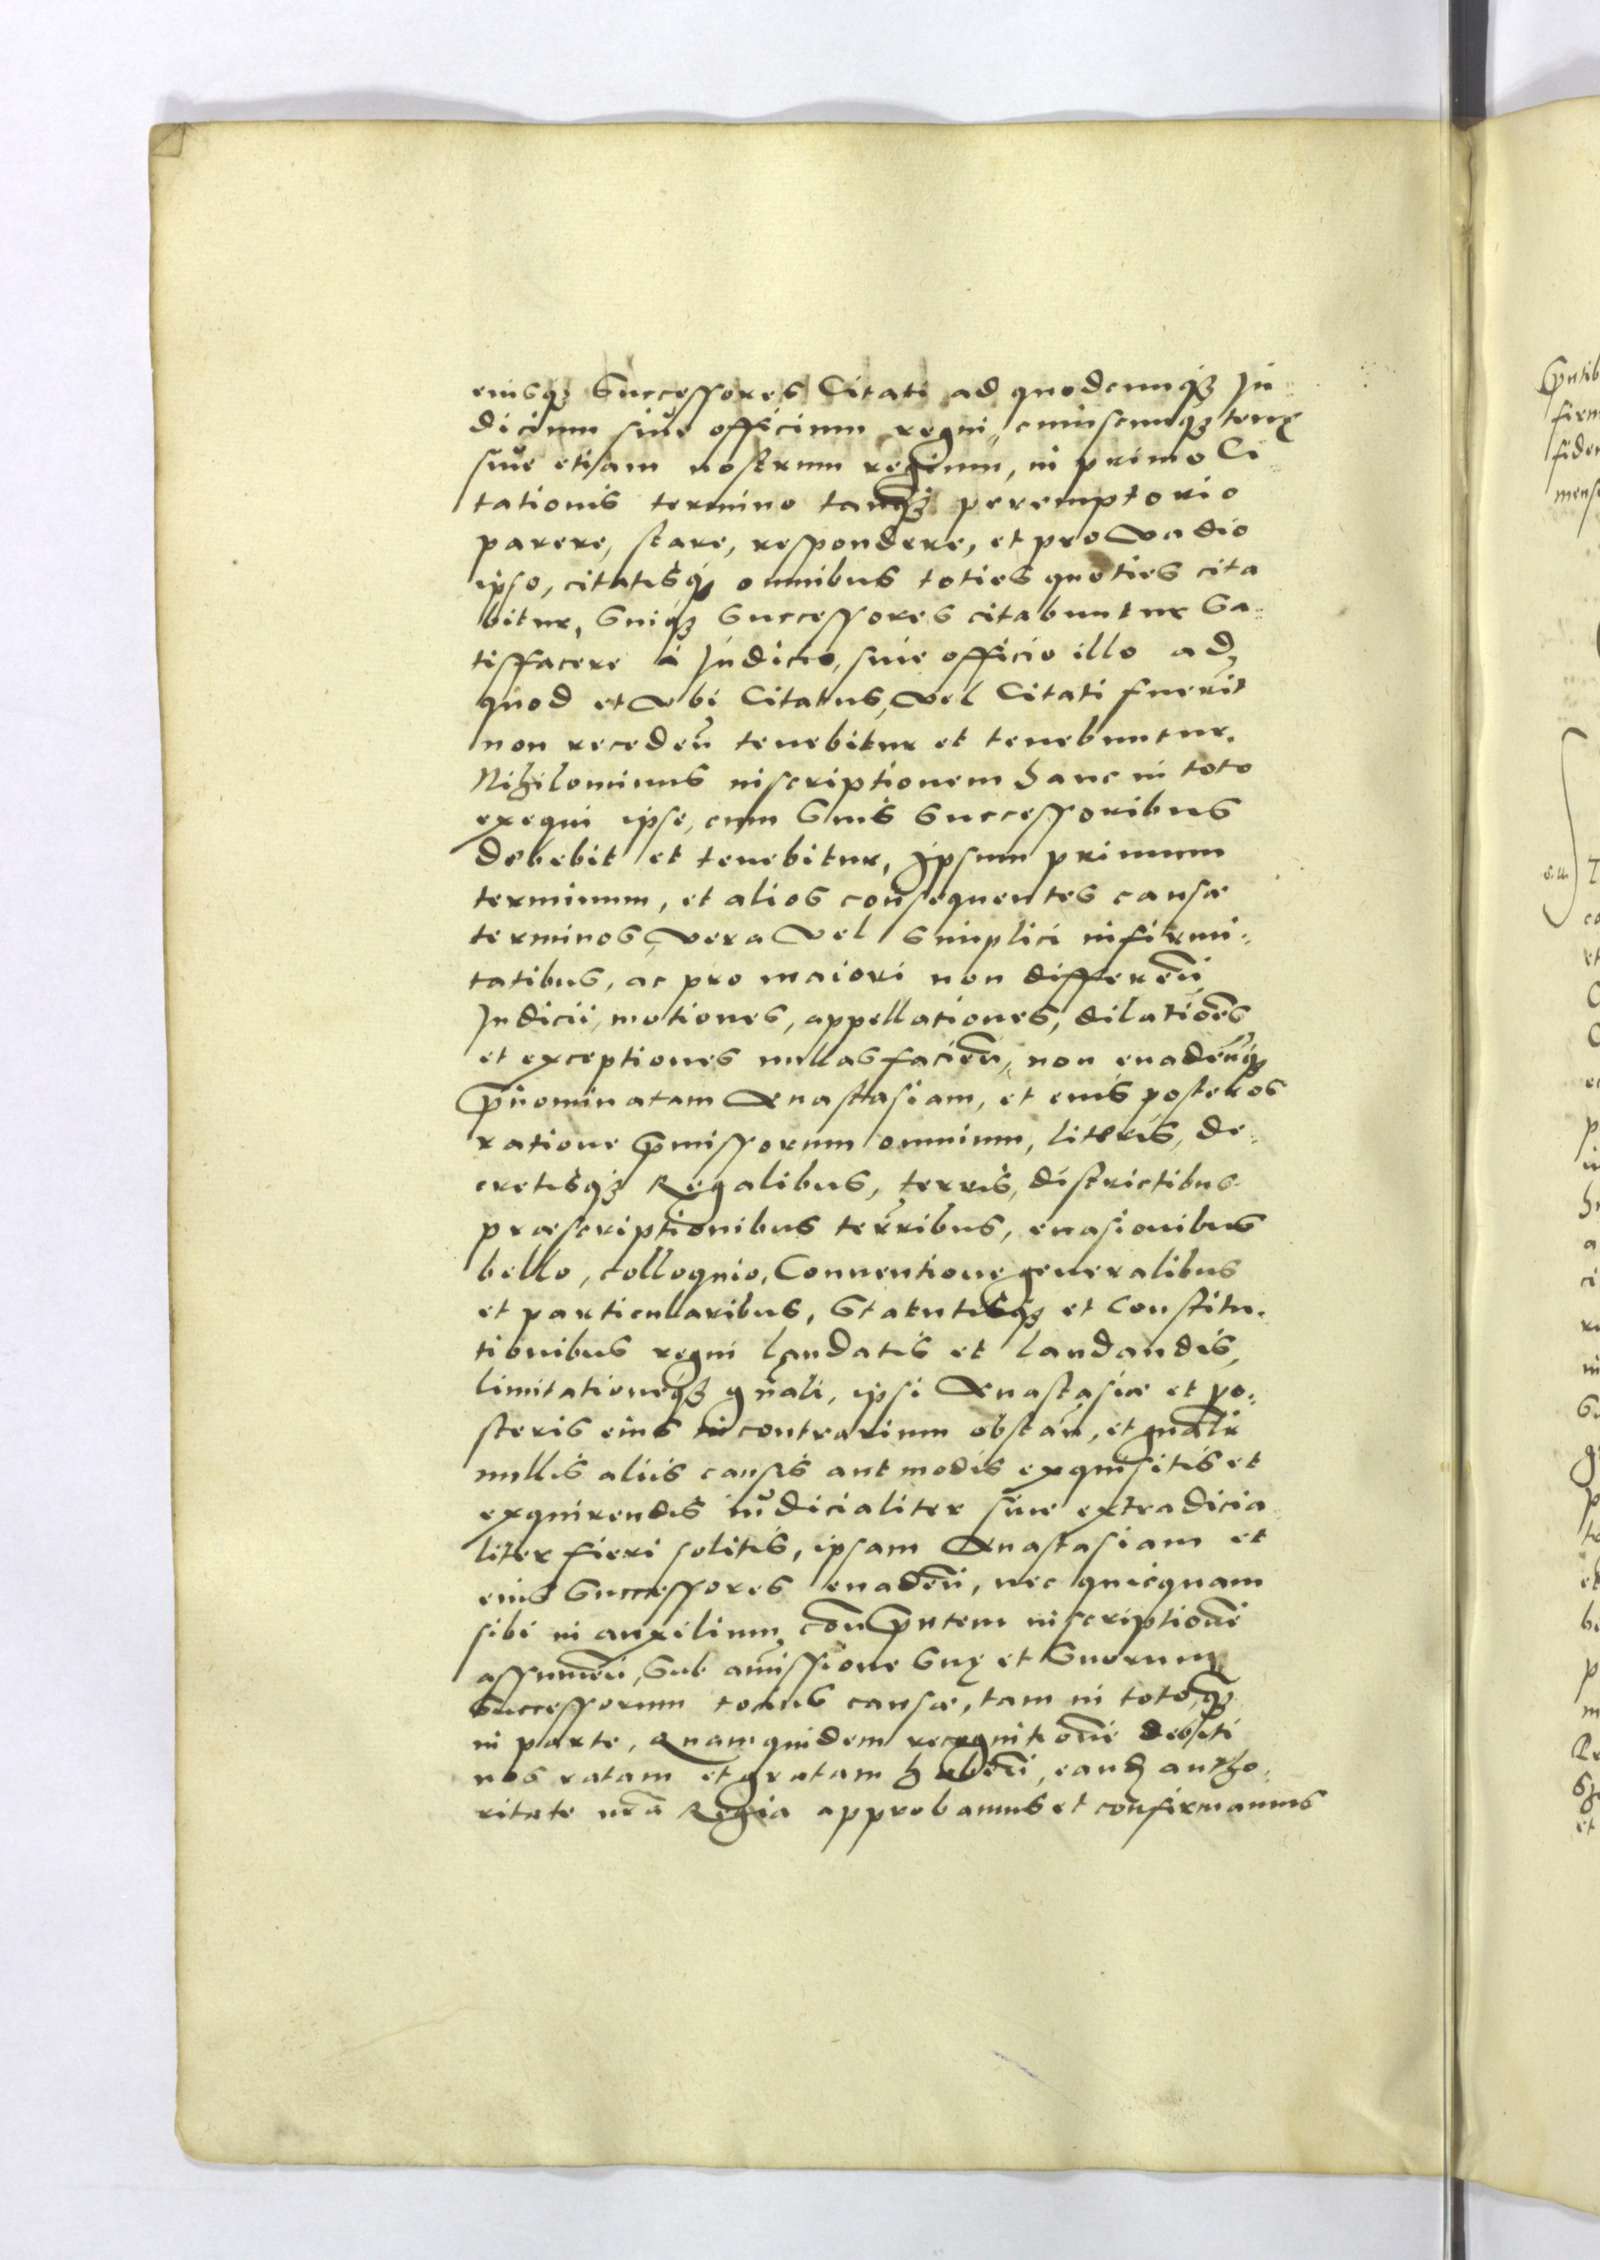 eiusqȝ Successores Citati ad quodcunqȝ Ju-
dicium siue officium regni, cuiuscunqȝ terrę
siue etiam nostrum regium, in primo Ci
tationis termino tanqȝ peremptorio
parere, stare, respondere, et pro vadio
ipso, citatisqȝ omnibus toties quoties cita
bitur, Suiqȝ Successores citabuntur Sa-
tisfacere á Judicio, siue officio illo ad
quod et vbi Citatus, vel Citati fuerit
non recedeñ tenebitur et tenebuntur.
Nihilominus inscriptionem hanc in toto
exequi ipse, cum Suis Successoribus
debebit et tenebitur, Ipsum primum
terminum, et alios consequentes causæ
terminos, vera vel Simplici infirmi-
tatibus, ac pro maiori non differeñ,
Judicii, motiones, appellationes, dilatiões
et exceptiones nullas facieñ, non euadeñqȝ
p̃nominatam Anastasiam, et eius posteros
ratione p̃missorum omnium, literis, de-
cretisqȝ Regalibus, terris, districtibus
præscriptionibus terribus, euasionibus
bello, colloquio, Conuentione generalibus
et particularibus, Statutisqȝ et Constitu-
tionibus regni laudatis et laudandis,
limitationeqȝ gñali, ipsi Anastasiæ et po-
steris eius in contrarium obstañ, et gñalr
nullis aliis causis aut modis exquisitis et
exquirendis iudicialiter siue extradicia
liter fieri solitis, ipsam Anastasiam et
eius Successores euadeñ, nec quicquam
sibi in auxilium, con p̃ntem inscriptioñe
assumeñ, Sub amissione Suę et Suorum
Successorum totius causæ, tam in toto qȝ
in parte, Quamquidem recognitioñe debiti
nos ratam et gratam habeñ, eanđ autho-
ritate ñra Regia approbamus et confirmamus